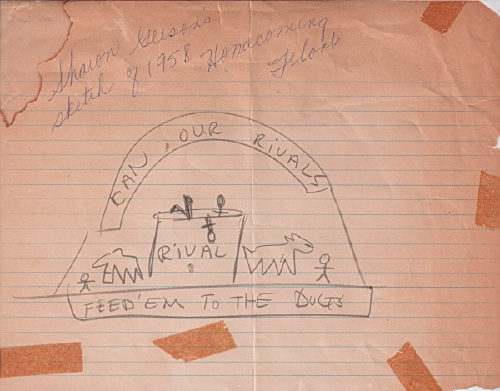 Sharon Gerson's
sketch of 1958 Homecoming
Float
CAN OUR RIVALS
RIVAL
FEED 'EM TO THE DUCKS